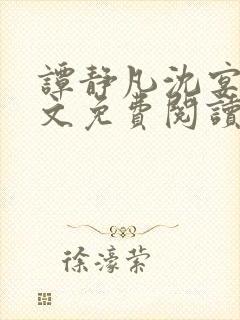 譚静凡沈宴
文免費閱讀
徐濠萦